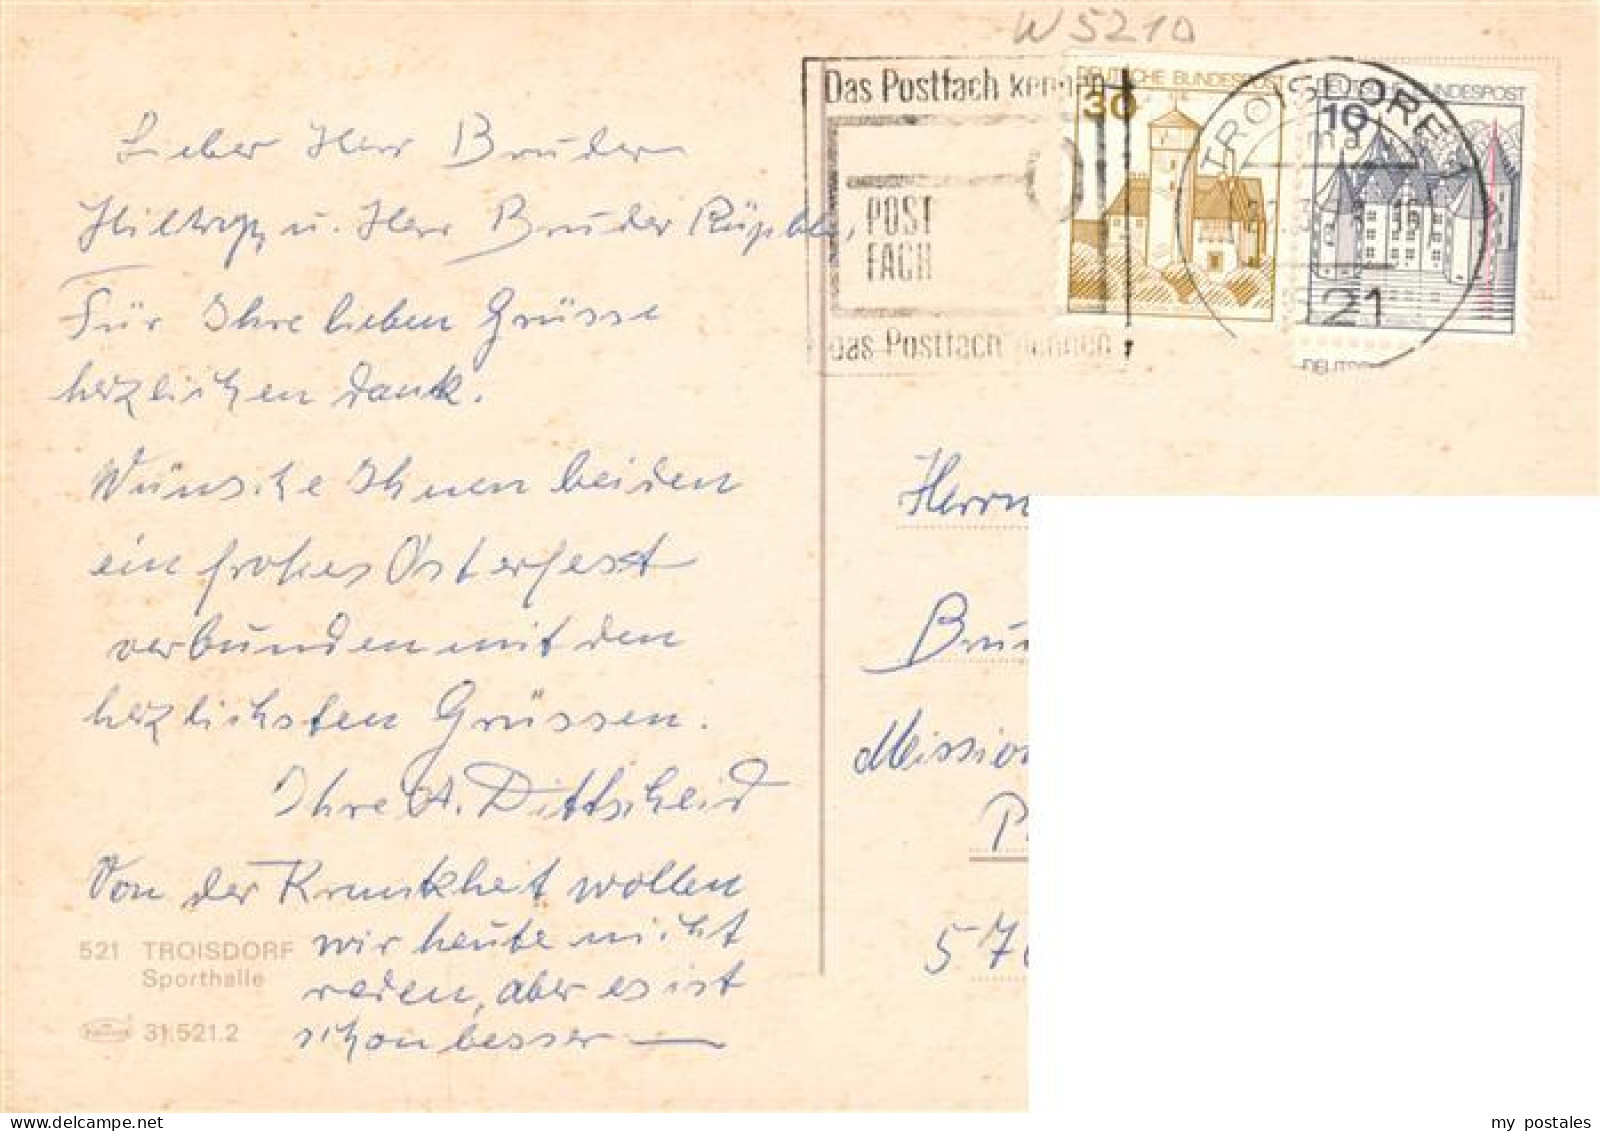 W5210
Das Postfach kennen
POST
FACH
das Postfach nennen
DEUTSCHE BUNDESPOST
30
DEUTSCHE BUNDESPOST
10
TROISDORF 1
ma
521
DEUTSC
Lieber Herr Bruder
u. Herr Bruder
Für Ihre lieben Grüsse
herzlichen Dank.
Wünsche Ihnen beiden
ein frohes Osterfest
verbunden mit den
herzlichsten Grüssen.
Ihre A. Dittscheid
Von der Krankheit wollen
wir heute nicht
reden, aber es ist
schon besser —
521 TROISDORF
Sporthalle
31.521.2
Herrn
Bru
Mission
P
570
my postales